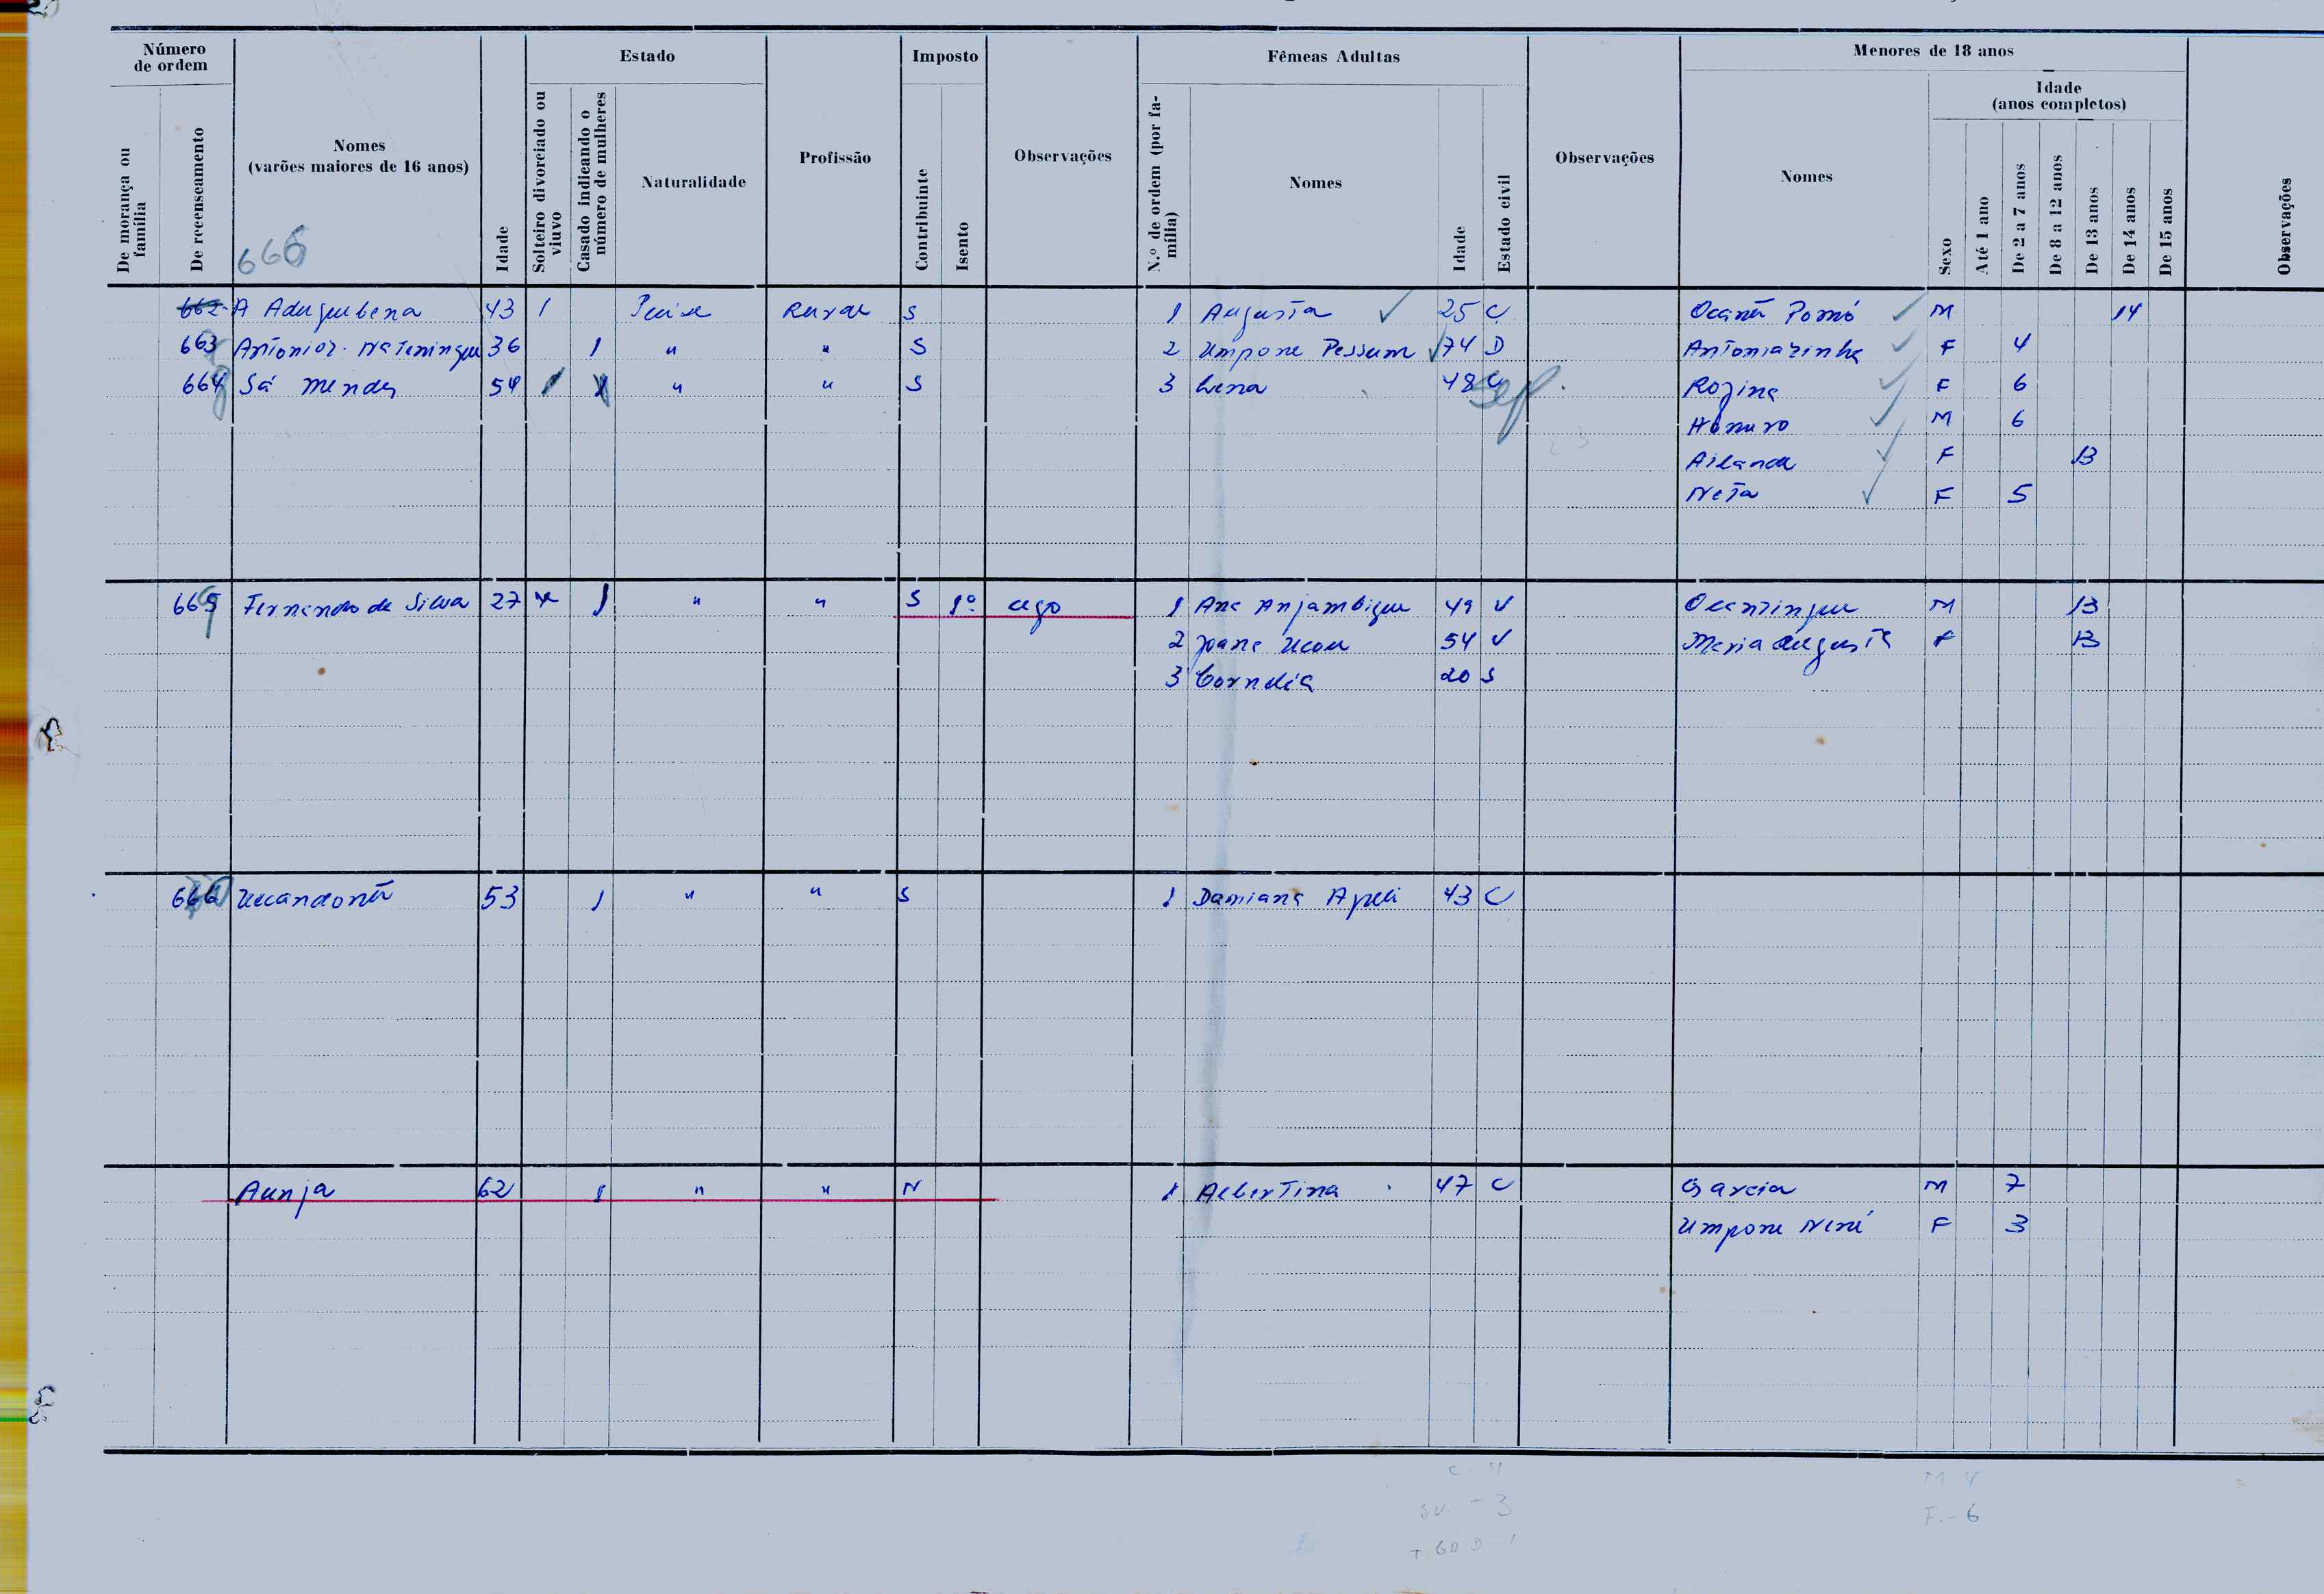 Número de ordem
De morança ou família
De recenseamento
Nomes (varões maiores de 16 anos)
666
Idade
Estado
Solteiro divorciado ou viuvo
Casado indicando o número de mulheres
Naturalidade
Profissão
Imposto
Contribuinte
Isento
Observações
Fêmeas Adultas
N.º de ordem (por família)
Nomes
Idade
Estado civil
Observações
Menores de 18 anos
Nomes
Sexo
Idade (anos completos)
Até 1 ano
De 2 a 7 anos
De 8 a 12 anos
De 13 anos
De 14 anos
De 15 anos
Observações
662 A Adugubena 43 1 Rural S 1 Augusta 25 C Pomó M 14
663 36 1 " " S 2 Umpone Pessum 74 D Antoniazinha F 4
664 Sá Mendes 54 1 " " S 3 Lena 48 C Rozina F 6
M 6
F 13
Neta F 5
665 Fernando da Silva 27 1 " " S 1º cego 1 Ana Anjambigue 49 V Ocantingue M 13
2 Joana 54 V Maria Augusta F 13
3 Cornélia 20 S
666 53 1 " " S 1 Damiana 43 C
Aunja 62 1 " " N 1 Albertina 47 C Garcia M 7
Umpone Nené F 3
C - 4 M 4
SV - 3 F. - 6